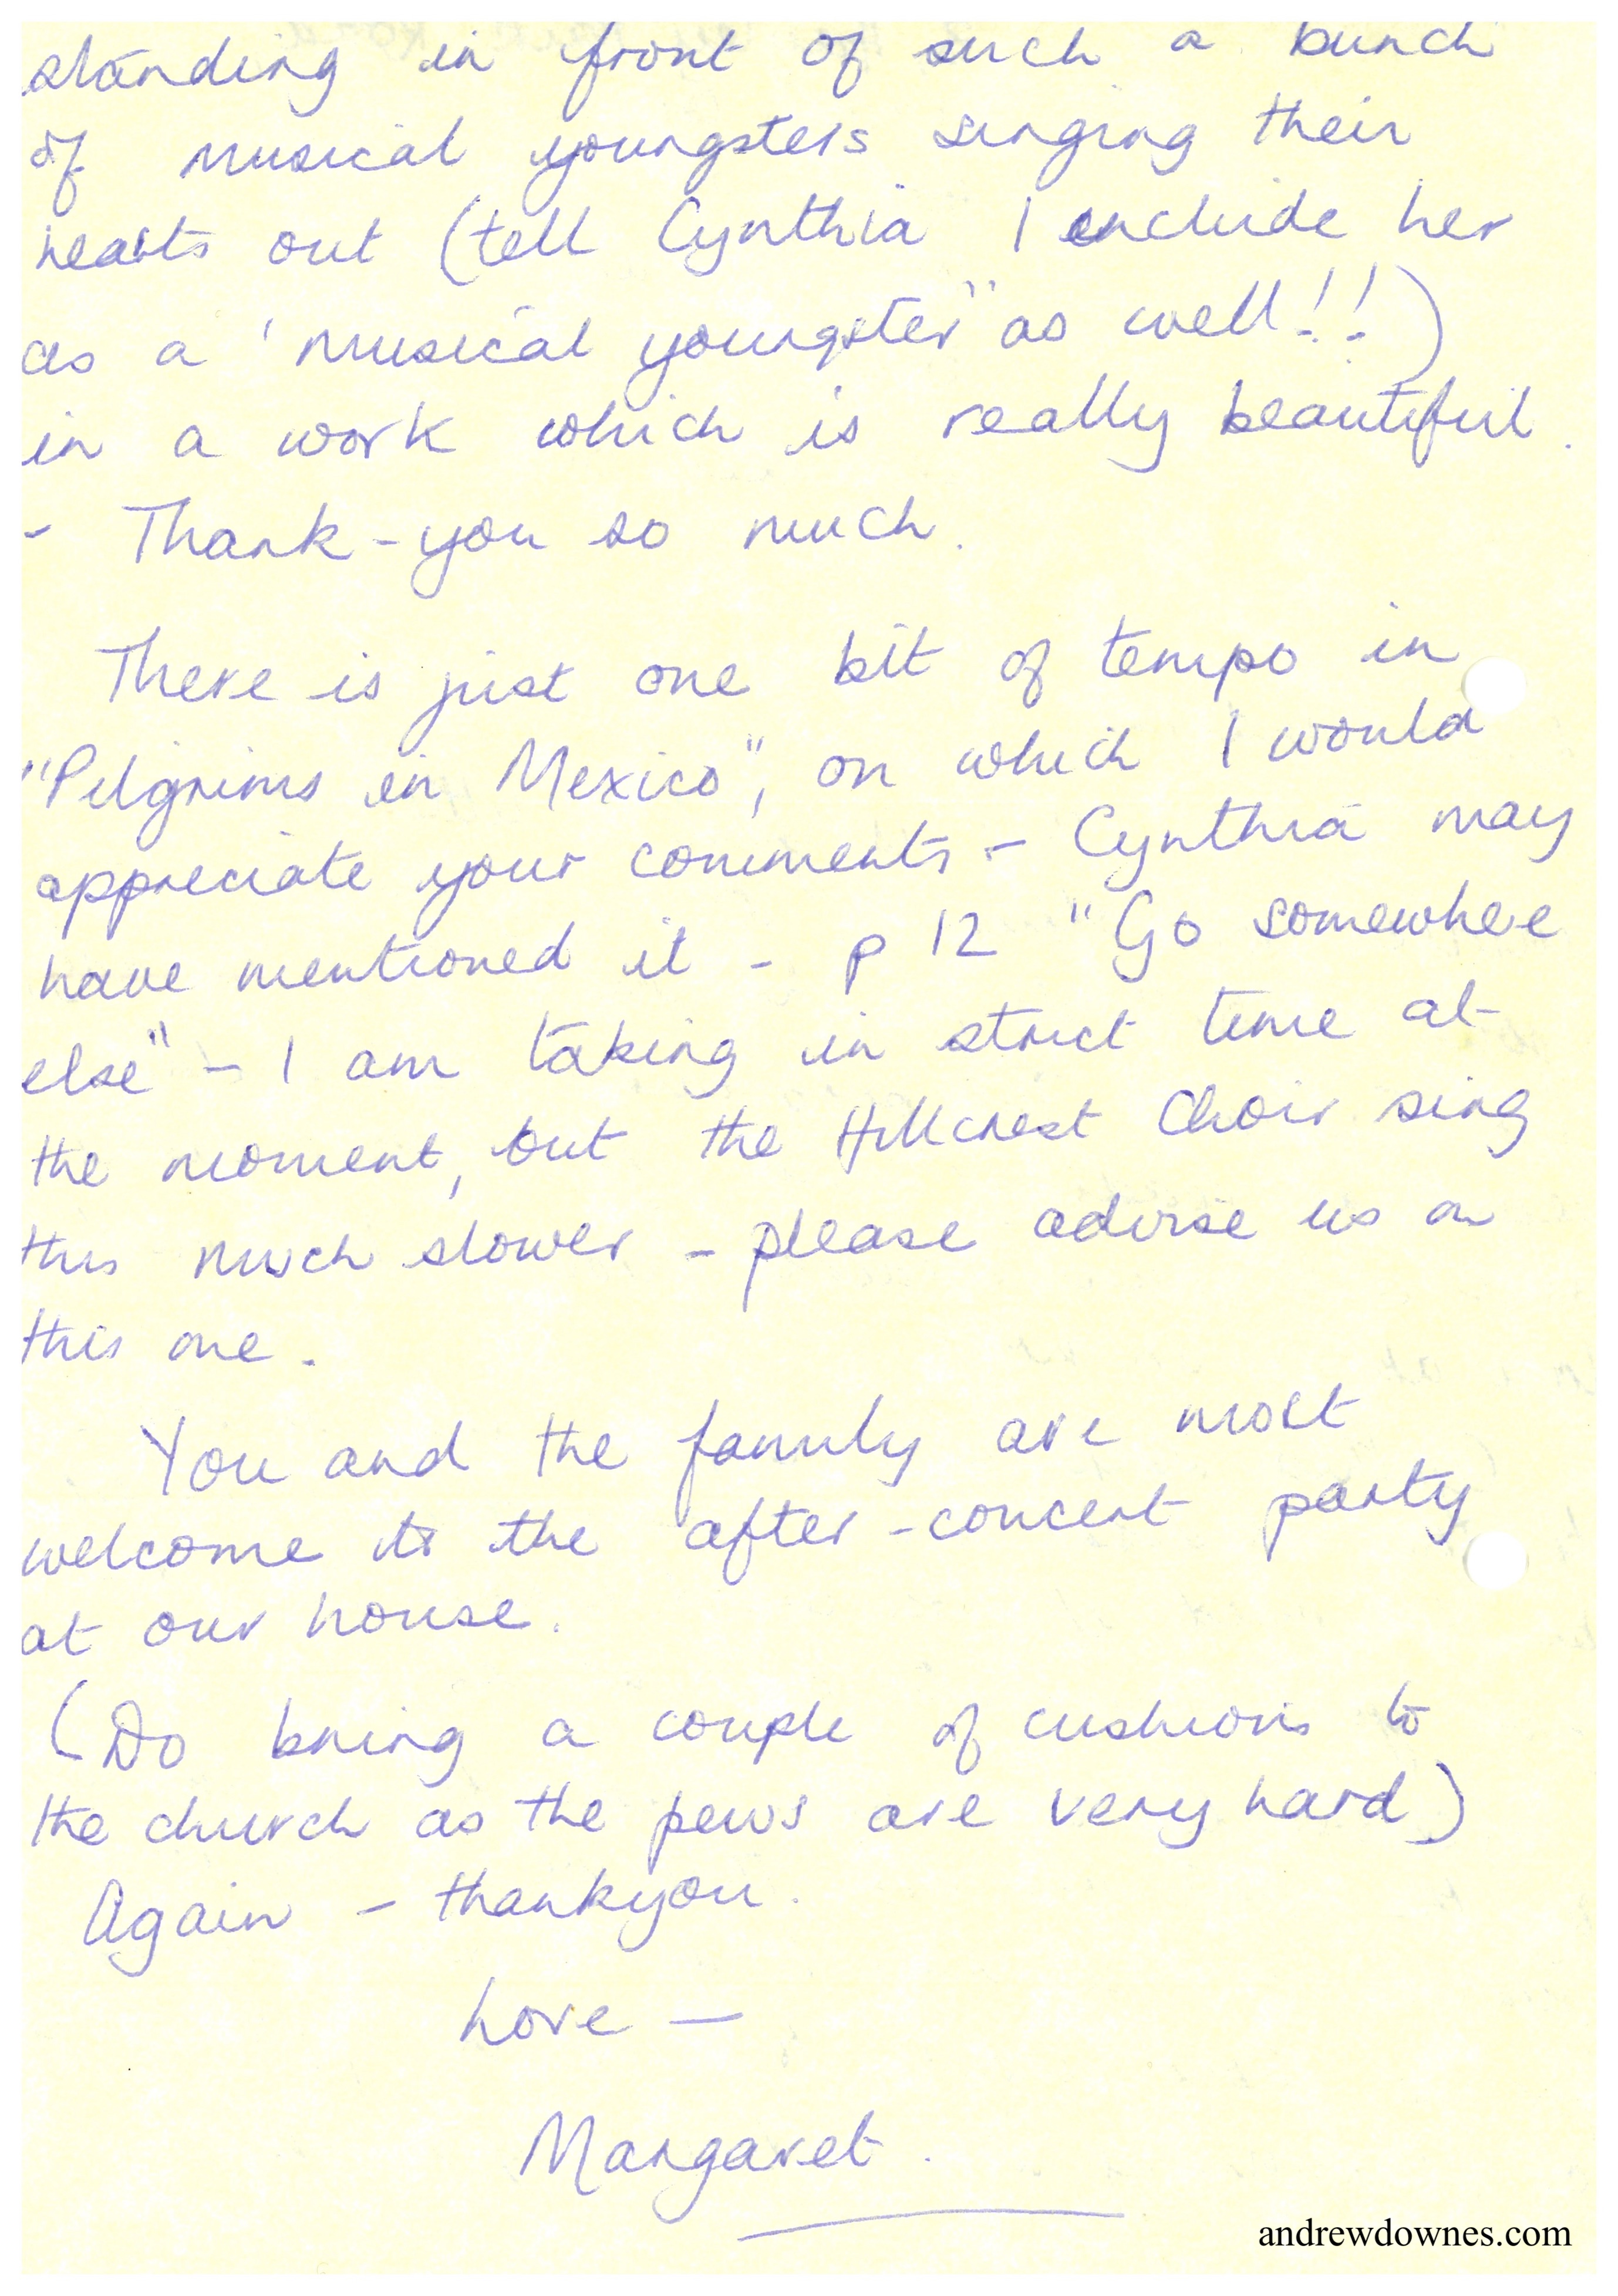 standing in front of such a bunch
of musical youngsters singing their
hearts out (tell Cynthia I include her
as a 'musical youngster" as well!!)
in a work which is really beautiful.
- Thank-you so much.
There is just one bit of tempo in
"Pilgrims in Mexico", on which I would
appreciate your comments - Cynthia may
have mentioned it - p 12 "Go somewhere
else" - I am taking in strict time at
the moment, but the Hillcrest Choir sing
this much slower - please advise us on
this one.
You and the family are most
welcome to the after-concert party
at our house.
(Do bring a couple of cushions to
the church as the pews are very hard)
Again - thankyou.
Love -
Margaret.
andrewdownes.com